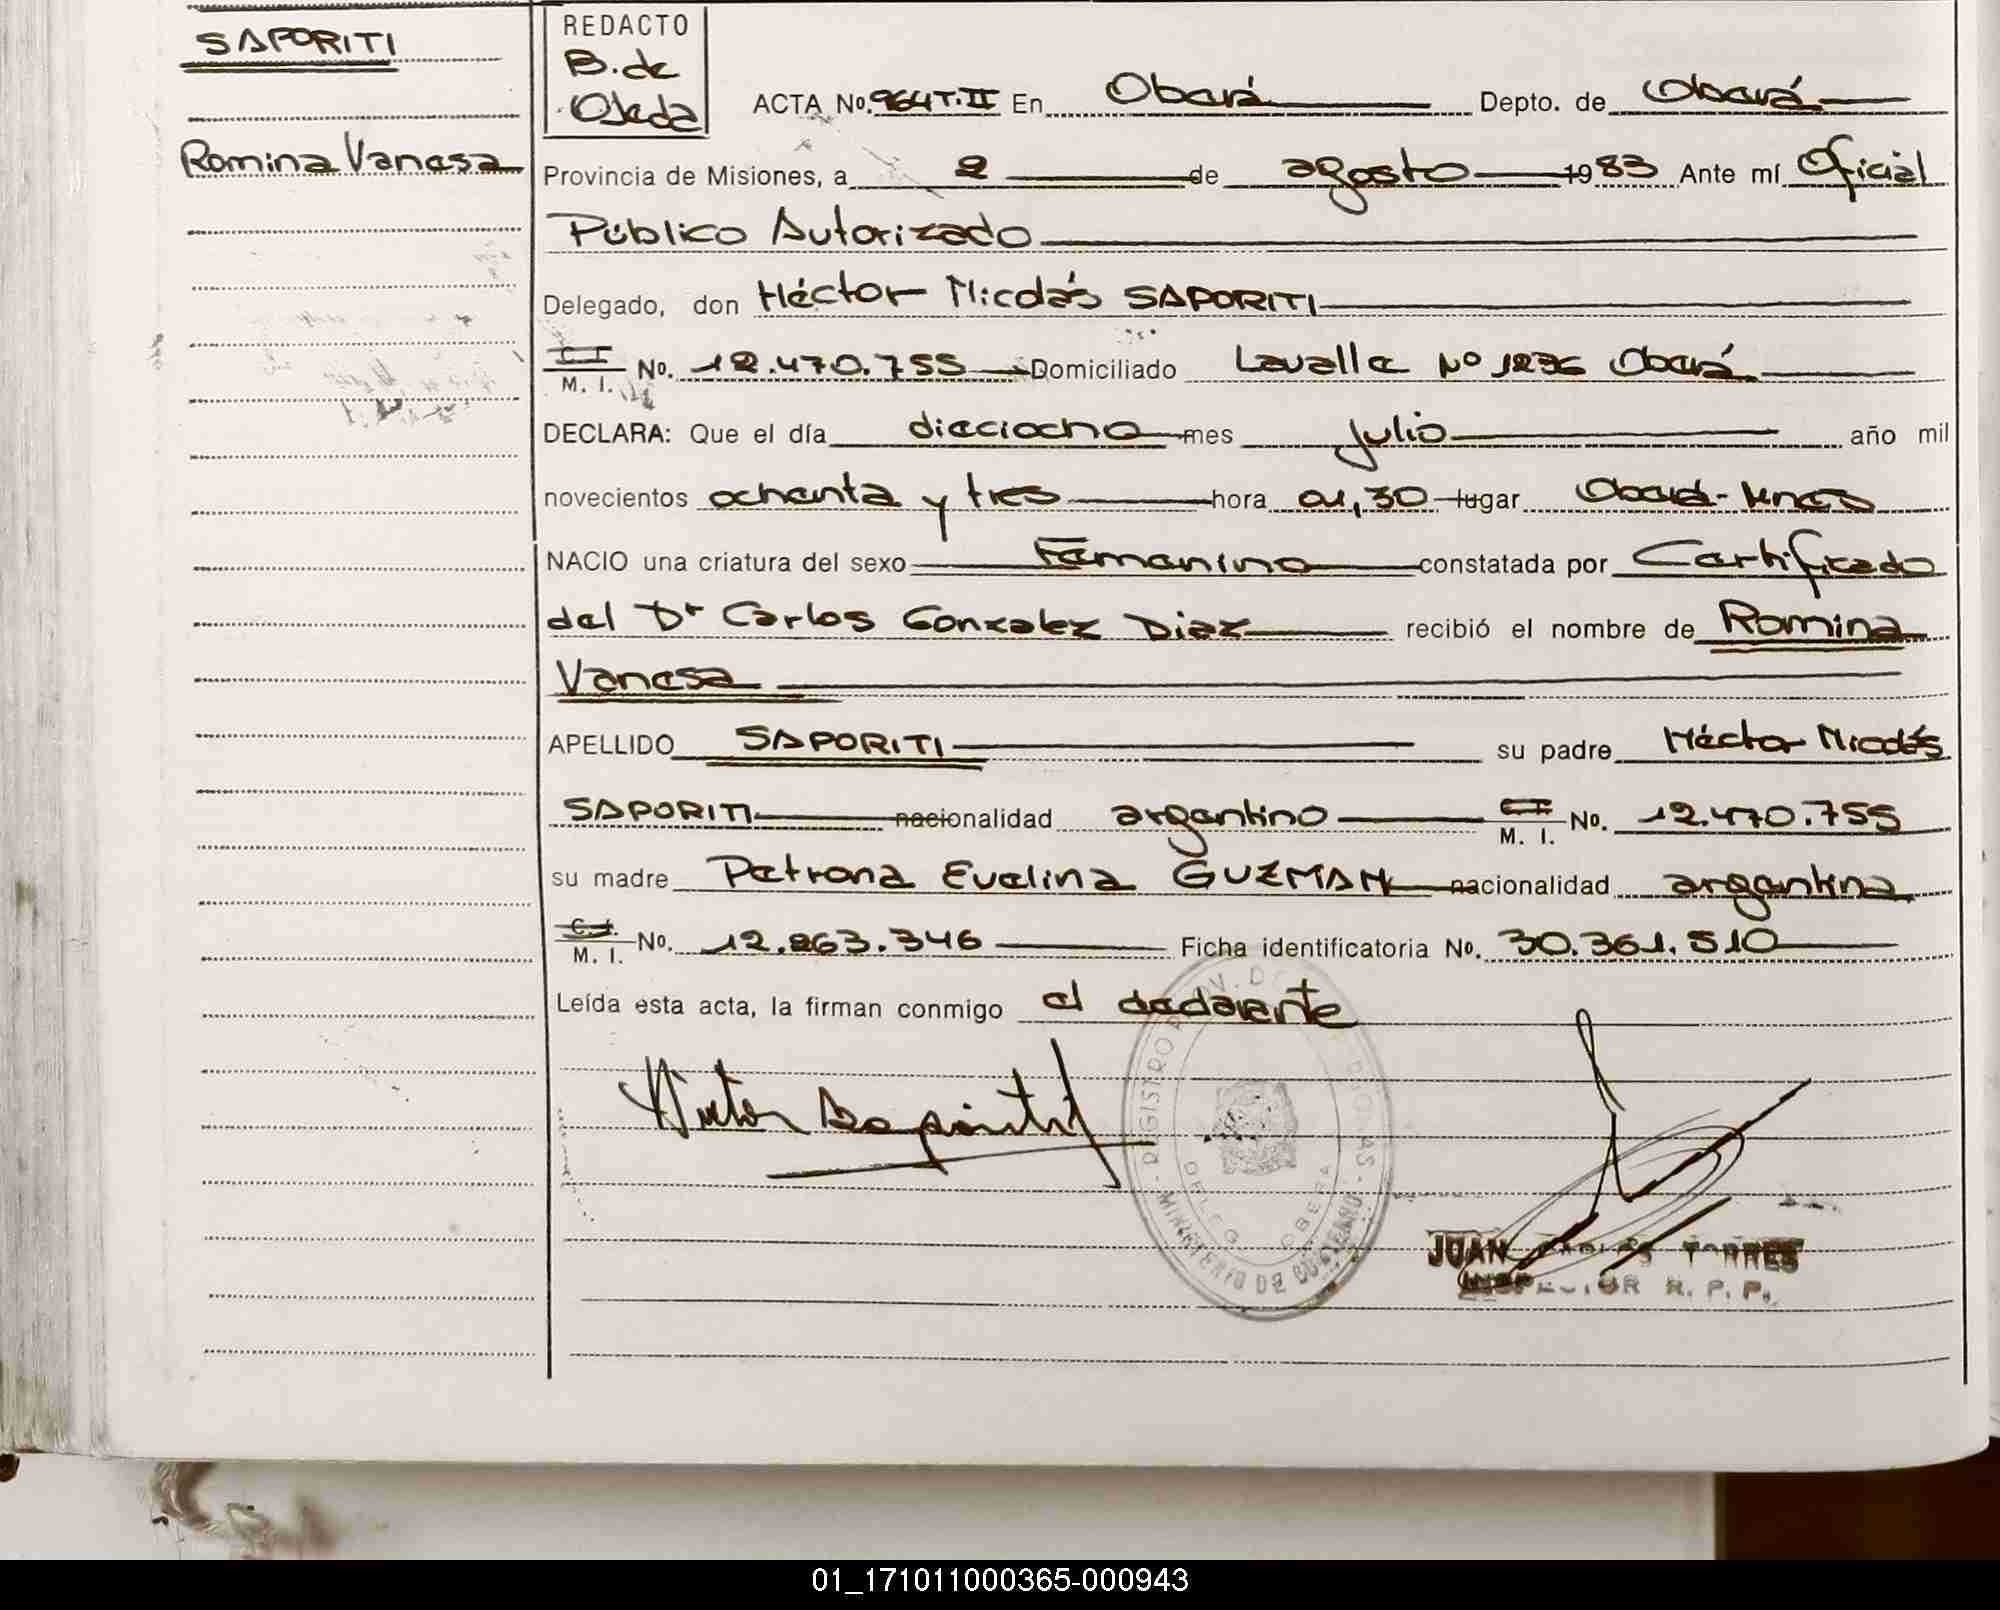 SAPORITI
Romina Vanesa
REDACTO
B. de
Ojeda
ACTA No. 964 T. II En Oberá Depto. de Oberá
Provincia de Misiones, a 2 de agosto 1983 Ante mí Oficial
Público Autorizado
Delegado, don Héctor Nicolás SAPORITI
C. I. M. I. No. 12.470.755 Domiciliado Lavalle Nº 1236 Oberá
DECLARA: Que el día dieciocho mes julio año mil
novecientos ochenta y tres hora 01,30 lugar Oberá - Mnes
NACIO una criatura del sexo Femenino constatada por Certificado
del Dr Carlos Gonzalez Diaz recibió el nombre de Romina
Vanesa
APELLIDO SAPORITI su padre Héctor Nicolás
SAPORITI nacionalidad argentino C. I. M. I. No. 12.470.755
su madre Petrona Evelina GUZMAN nacionalidad argentina
C. I. M. I. No. 12.863.346 Ficha identificatoria No. 30.361.510
Leída esta acta, la firman conmigo el declarante
REGISTRO PROV. DE PERSONAS
DELEG. OBERA
MINISTERIO DE GOBIERNO
JUAN CARLOS TORRES
INSPECTOR R. P. P.
01_171011000365-000943